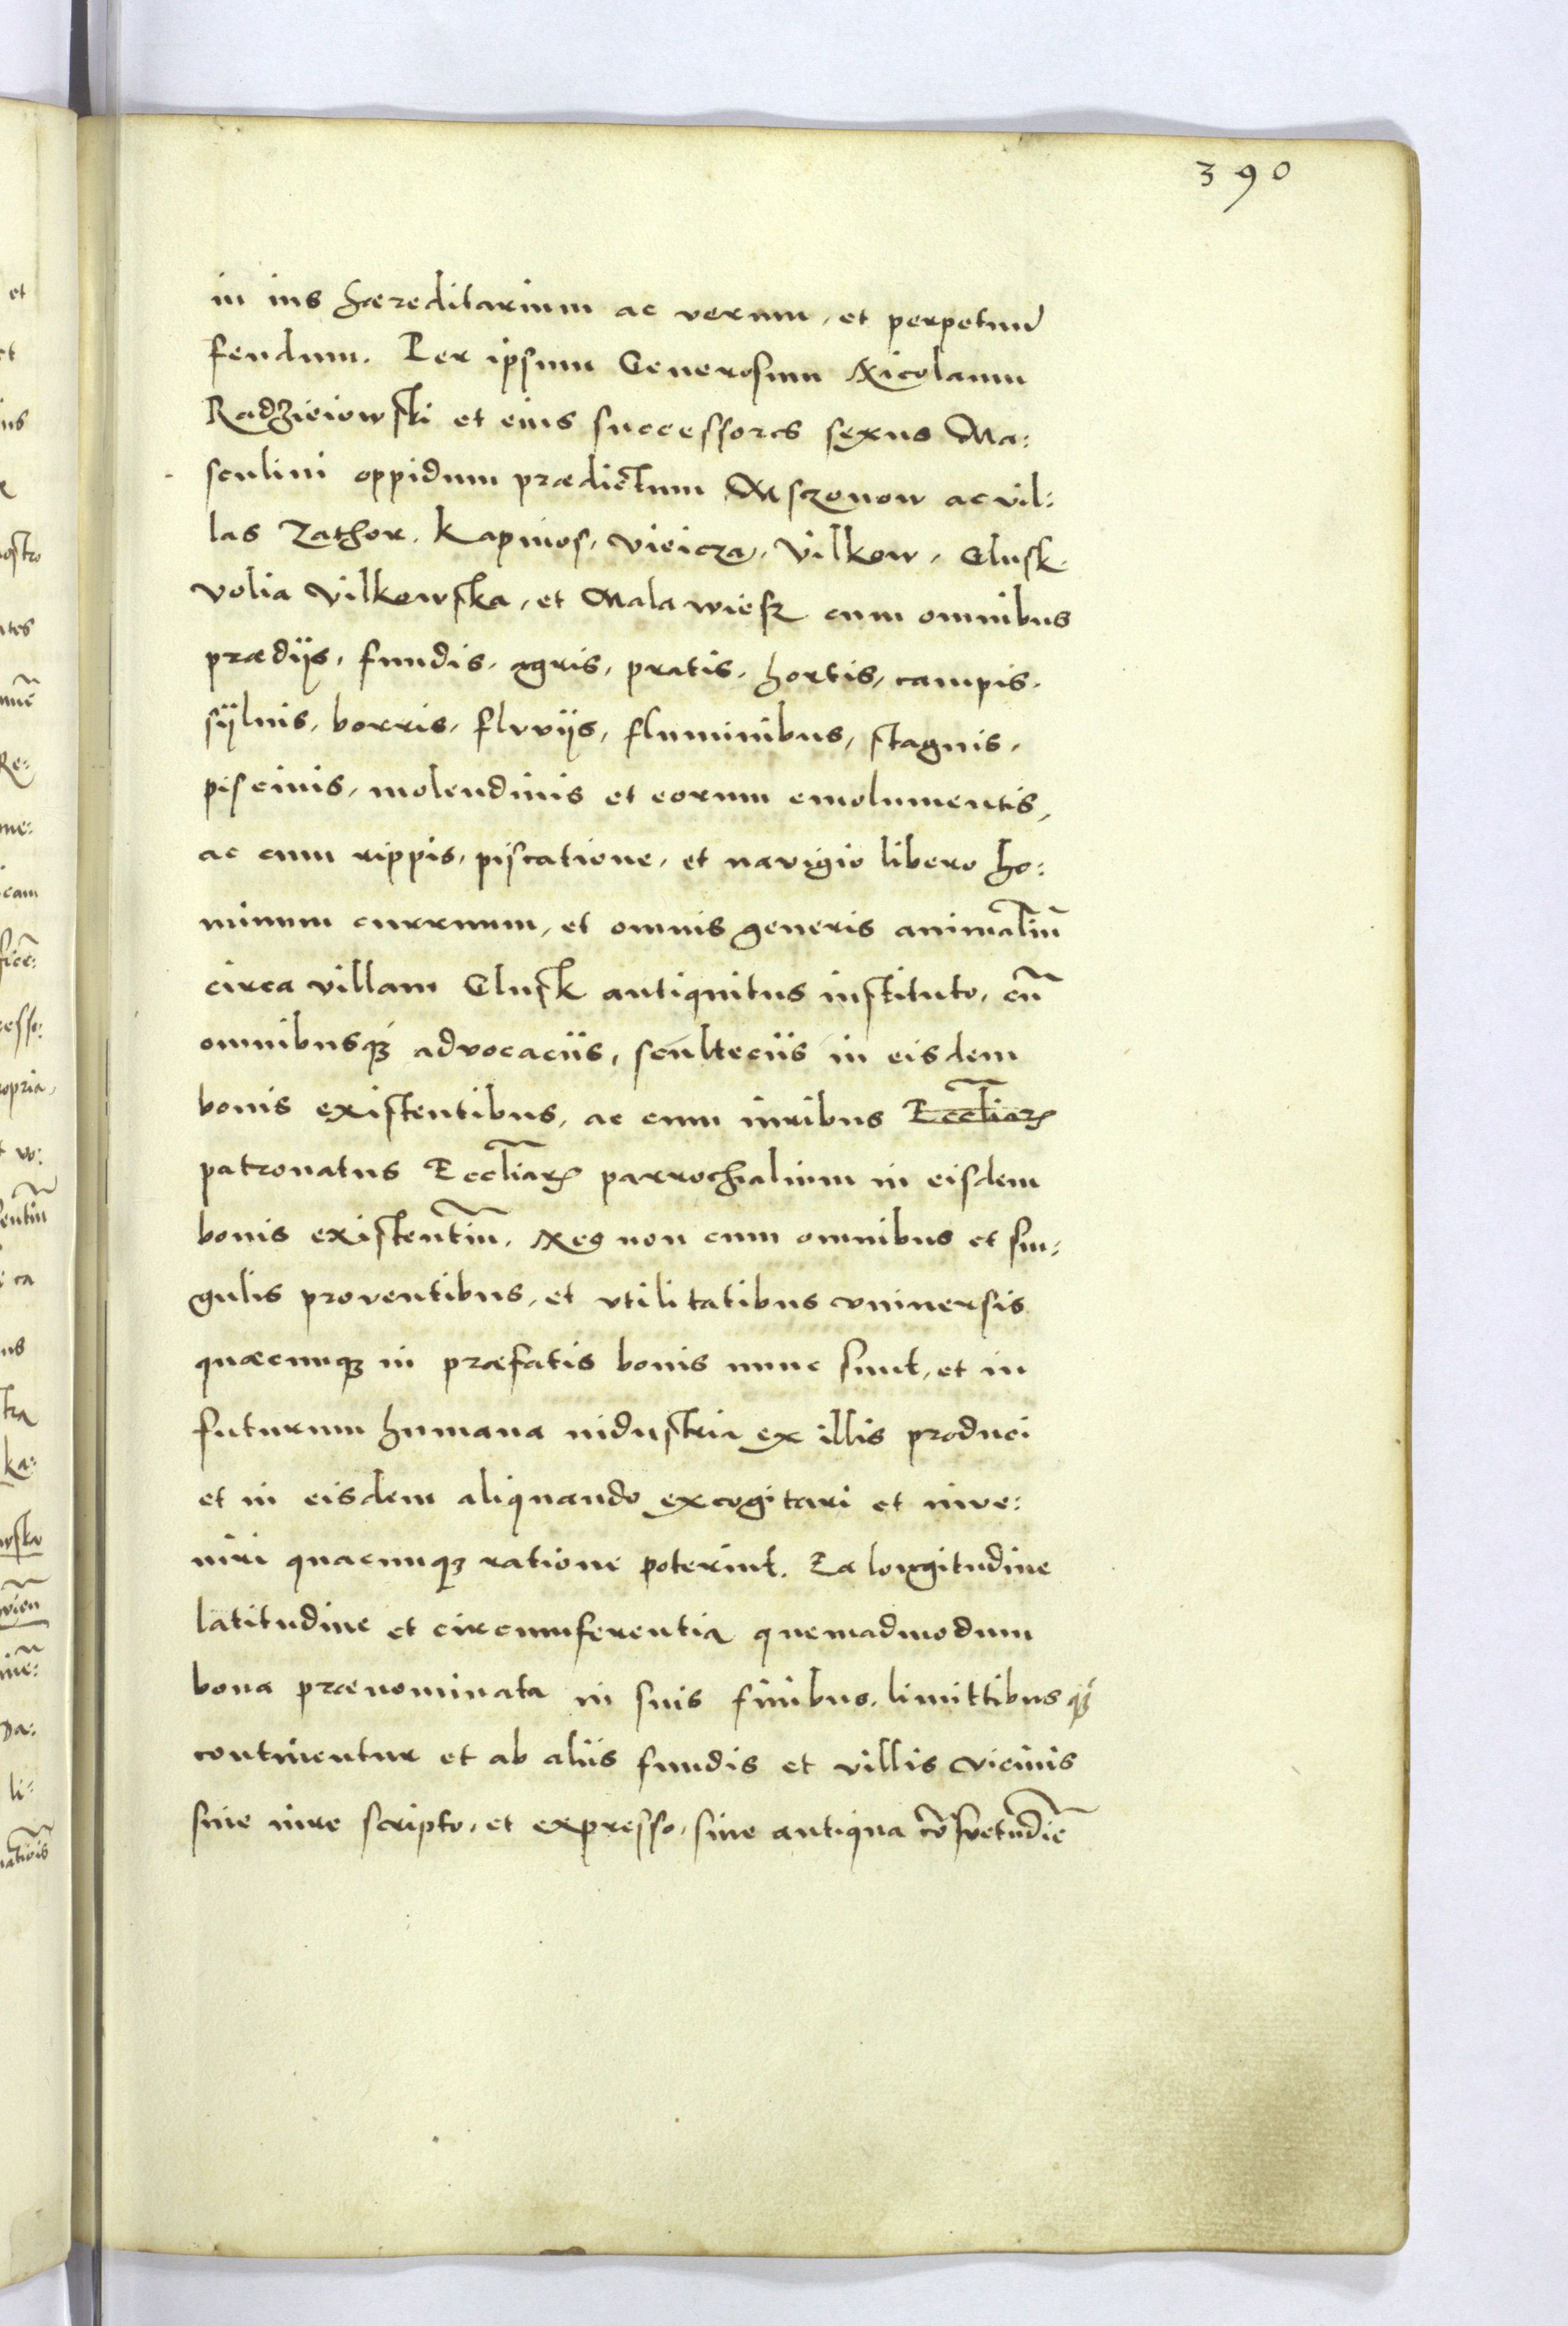 390
in ius hæreditarium ac verum, et perpetuū
feudum. Per ipsum Generosum Nicolaum
Radzieiowski et eius successores sexus Ma:
sculini oppidum prædictum Msczonow ac vil:
las Zathor, Kapinos, Vieicza, Vilkow, Glusk
volia Vilkowska, et Mala wiesz cum omnibus
prædijs, fundis, agris, pratis, hortis, campis,
sylvis, borris, fluvijs, fluminibus, stagnis,
piscinis, molendinis et eorum emolumentis,
ac cum rippis, piscatione, et navigio libero ho:
minum curruum, et omnis generis animaliū
circa villam Glusk antiquitus instituto, cū
omnibusqʒ advocaciis, scultecüs in eisdem
bonis existentibus, ac cum iuribus Eccliarꝝ
patronatus Eccliarꝝ parrochalium in eisdem
bonis existentiū. Nec non cum omnibus et sin:
gulis proventibus, et vtilitatibus vniversis
quæcunqʒ in præfatis bonis nunc sunt, et in
futurum humana industria ex illis produci
et in eisdem aliquando excogitari et inve:
niri quacunqʒ ratione poterint. Ea longitudine
latitudine et circumferentia quemadmodum
bona prænominata in suis finibus, limittibusqʒ
continentur et ab aliis fundis et villis vicinis
sive iure scripto, et expresso, sive antiqua cōsvetudīe